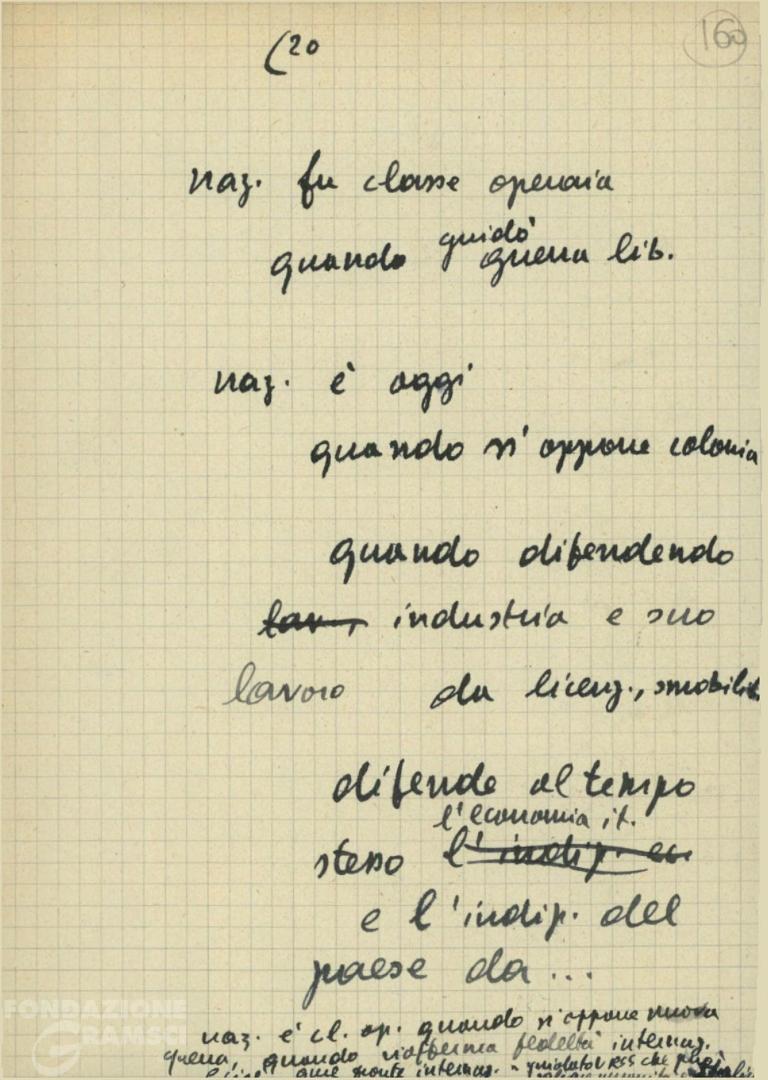 (20
160
naz. fu classe operaia
guidò
quando guerra lib.
naz. è oggi
quando si oppone colonia
quando difendendo
lav., industria e suo
lavoro da licenz., smobilit
difende al tempo
l'economia it.
stesso l'indip. ec
e l'indip. del
paese da...
naz. è cl. op. quando si oppone nuova
guerra, quando riafferma fedeltà internaz.
fronte internaz. URSS che
FONDAZIONE
GRAMSCI